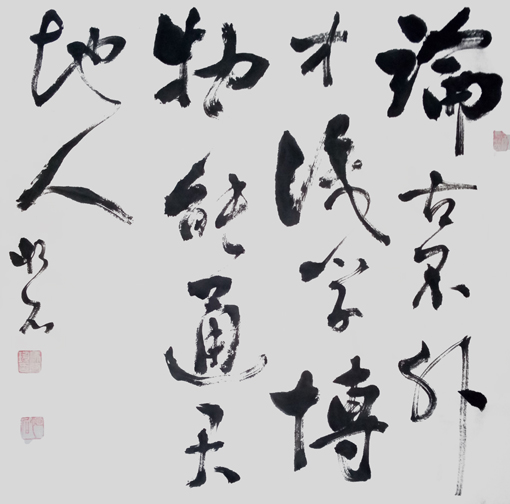 論古不外
才識學博
物能通天
地人